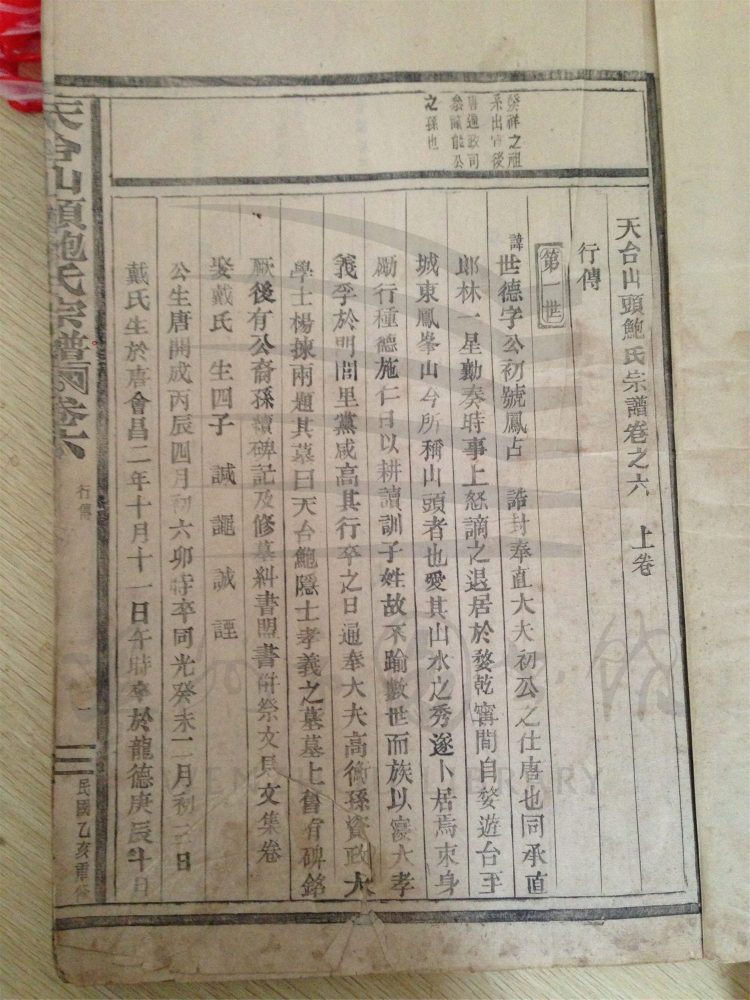 天台山頭鮑氏宗譜卷之六　上卷
行傳
發祥之祖
系出 後
唐通政司
叅 公
之孫也
第一世
諱世德字公初號鳳占　誥封奉直大夫初公之仕唐也同承直
郎林一星勤奏時事上怒謫之退居於婺乾窨間自婺遊台至
城東鳳峯山今所稱山頭者也愛其山水之秀遂卜居焉束身
勵行種德施仁日以耕讀訓子姓故不踰數世而族以寖大孝
義孚於明間里黨咸高其行卒之日通奉大夫高衡孫資政大
學士楊棟兩題其墓曰天台鮑隱士孝義之墓墓上舊有碑銘
厥後有公裔孫讀碑記及修墓糾書盟書併祭文具文集卷
娶戴氏　生四子　誠　誠
公生唐開成丙辰四月初六卯時卒同光癸未二月初三日
戴氏生於唐會昌二年十月十一日午時卒於龍德庚辰十月
天台山頭鮑氏宗譜 卷六
行傳
一
民國乙亥重修